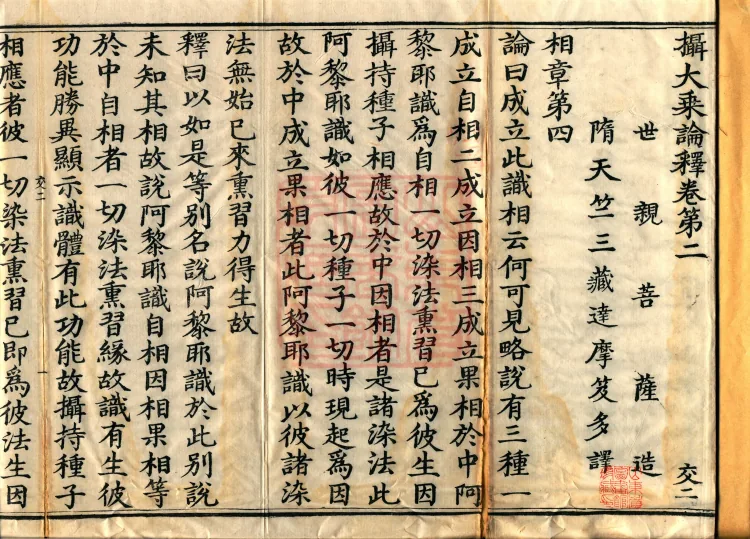 攝大乘論釋卷第二
交二
世親菩薩造
隋天竺三藏達摩笈多譯
相章第四
論曰成立此識相云何可見略說有三種一
成立自相二成立因相三成立果相於中阿
黎耶識爲自相一切染法熏習已爲彼生因
攝持種子相應故於中因相者是諸染法此
阿黎耶識如彼一切種子一切時現起爲因
故於中成立果相者此阿黎耶識以彼諸染
法無始已來熏習力得生故
釋曰以如是等別名說阿黎耶識於此別說
未知其相故說阿黎耶識自相因相果相等
於中自相者一切染法熏習緣故識有生彼
功能勝異顯示識體有此功能故攝持種子
交二
一
相應者彼一切染法熏習已即爲彼法生因